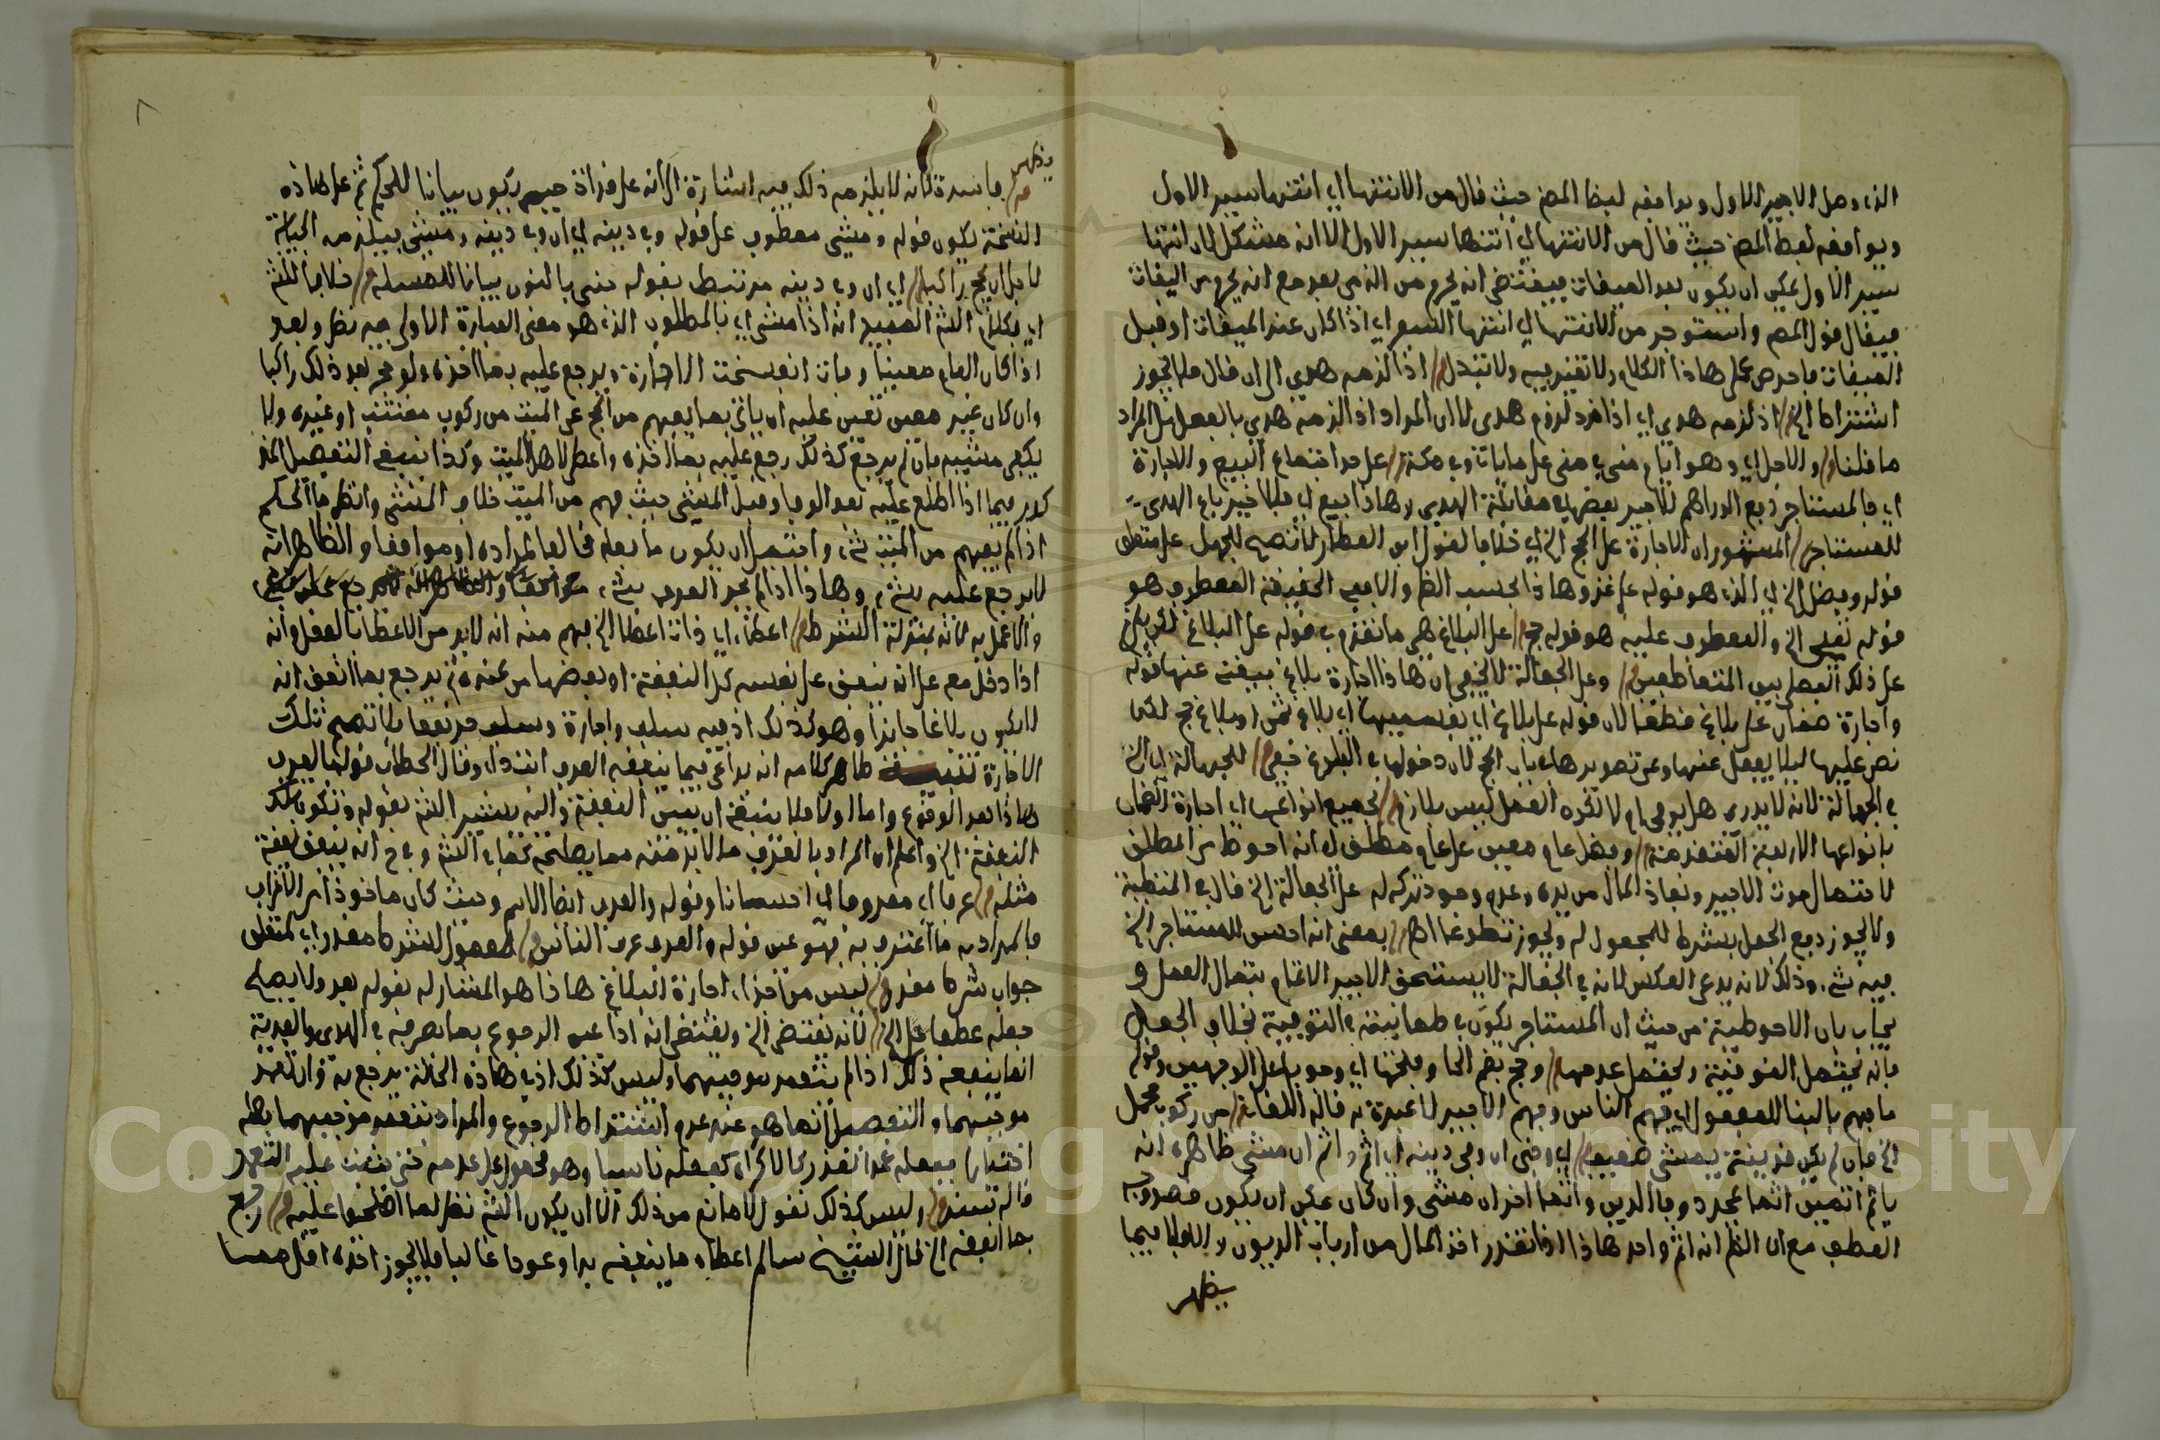 الذي وصل الاجير الاول ويوافقه لفظ المص حيث قال من الانتها اي انتها سير الاول
ويوافقه لفظ المص حيث قال من الانتها اي انتها سير الاول الا انه مشكل لان انتها
سير الاول يمكن ان يكون بعد الميقات فيقتضي انه يحرم من الذي بعد مع انه يحرم من الميقات
فيقال قول المص واستوجر من الانتها اي انتها السير اي اذا كان عند الميقات او قبل
الميقات فاحرص على هاذا الكلام ولا تغتر به ولا تبدل اذا لزمه هدي الى ان قال ولا يجوز
اشتراط الخ اذ لزمه هدي اي اذا فرد لزوم هدي لان المراد اذا لزمه هدي بالفعل بل المراد
ما قلنا والاجل اي وهو ايام منى في منى على ما يات وفي مكة على حد اجتماع البيع والاجارة
اي فالمستاجر دفع الدراهم للاجير بعضها في مقابلة الهدي وهاذا بيع اي فالاجير باع الهدي
للمستاجر المشهور ان الاجارة على الحج الخ اي خلافا لقول ابن العطار على متعلق
قوله وفضل الخ اي الذي هو قوله على غزو وهاذا بحسب الظ والا ففي الحقيقة المعطوف هو
قوله تعلى الخ والمعطوف عليه هو قوله حج على البلاغ هي ما تقدم في قوله على البلاغ
على ذلك الفصل بين المتعاطفين وعلى الجعالة لا يخفى ان هاذا اجارة بلاغ فيغنى عنها قوله
واجارة ضمان على بلاغ قطعا لان قوله على بلاغ اي بقسميها اي بلاغ ثمن او بلاغ حج لكن
نص عليها ليلا يغفل عنها وعن تصويرها في باب الحج لان دخولها في البلاغ خفي للجهالة اي الخ
في الجهالة لانه لا يدري هل يوفي ام لا لكون العمل ليس بلازم بجميع انواعها اي اجارة الضمان
بانواعها الاربعة المتقدمة وفضل عام معين على عام مطلق اي انه احوط من المطلق
لاحتمال موت الاجير ونفاذ المال من يده وعدم وجود تركه له على الجعالة الخ قال في المنتخبة
ولا يجوز دفع الجعل بشرط للمجعول له ويجوز تطوعا اهـ بمعنى انه احسن للمستاجر الخ
فيه شيء وذلك لانه يدعى العكس لانه في الجعالة لا يستحق الاجير الا بتمام العمل و
يجاب بان الاحوطية من حيث ان المستاجر يكون في طمانينة في التوفية بخلاف الجعل
فانه يحتمل التوفية ويحتمل عدمها وحج بفم الحا وفتحها اي وجوبا على الوجهين وقوله
ما فهم بالبنا للمفعول اي فهم الناس وفهم الاجير لا عبرة به قاله اللقاني من ركوب محمل
الخ فان لم يكن قرينة يمشي ضعيف اي وجنى ان وفى دينه اي اثم واثم ان مشى ظاهره انه
ياثم اثمين اثما بمجرد وفا الدين واثما اخر ان مشى وان كان يمكن ان يكون قصده به
العطف مع ان الظ انه اثم واحد هاذا اذا تعذر اخذ المال من ارباب الديون والا فلا فيما
يظهر
يظهر
فاسدة لانه لا يلزمه ذلك فيه اشارة الى انه على قراءة جيم يكون بيانا للحكم ثم على هاذه
النسخة يكون قوله ومشى معطوف على قوله وفي دينه اي ان وفى دينه ومشى فيلزمه الجناية
لا قبل ان يحج راكبا اي ان وفى دينه مرتبط بقوله جنى بالنون بيانا للمسلة خلافا للش
اي بكلام الش المفيد انه اذا مشى اي بالمطلوب الذي هو معنى العبارة الاولى فيه نظر وبعد
اذا كان العام معينا وفات انفسخت الاجارة ويرجع عليه بما اخذه ولو حج بعد ذلك راكبا
وان كان غير معين تعين عليه ان ياتي بما يفهم من الحج عن الميت من ركوب مقتب او غيره ولا
يكفي مشيه فان لم يرجع كذلك رجع عليه بما اخذه واعطى لاهل الميت وكذا ينبغي التفصيل المذ
كور فيما اذا اطلع عليه بعد الوفا وقبل المشي حيث فهم من الميت خلاف المشي وانظر ما الحكم
اذا لم يفهم من الميت شيء واحتمل ان يكون ما فعله مخالفا لمراده او موافقا والظاهر انه
لا يرجع عليه بشيء وهاذا اذا لم يجر العرف بشيء
والا عمل به لانه بمنزلة الشرط اعطاء اي ذات اعطا الخ فهم منه انه لا بد من الاعطا بالفعل وانه
اذا دخل معه على انه ينفق على نفسه كل النفقة او بعضها من عنده ثم يرجع بما انفق انه
لا يكون بلاغا جايزا وهو كذلك اذ فيه سلف واجارة وسلف جر نفعا بلا تهمة تلك
الاجارة ظاهر كلامه انه يراعى فيما ينفقه العرف ابتدا وقال الحطاب قوله بالعرف
هاذا بعد الوقوع واما اولا فلا ينبغي ان يبين النفقة واليه يشير الش بقوله وتكون تلك
النفقة الخ واعلم ان المراد بالعرف ما لا بد منه مما يصلحه كما في الش وفي ج انه ينفق نفقة
مثله عرفا اي معروفا اي احسانا وقوله والعرف ايضا الاسم وحيث كان ماخوذا من الاعراف
فالمراد به ما اعترف به فهو عين قوله والعرف عرف الناس معمول للشرط مقدر اي لمتعلق
جواب شرط مقدر ليس من اقراء اجارة البلاغ هاذا هو المشار له بقوله بعد ولا يصلح
جعله عطفا على الخ لانه يقتضي الخ ويقتضي انه اذا عين الرجوع بما يصرفه في الهدي والفدية
انما ينفعه ذلك اذا لم يتعمد موجبهما وليس كذلك اذ في هاذه الحالة يرجع به وان تعمد
موجبهما والتفصيل انما هو عند عدم اشتراط الرجوع والمراد بتعمد موجبهما فعله
اختيارا ففعله عمدا لعذر كالاكراه كفعله ناسيا وهو محمول على عدمه حتى يثبت عليه التعمد
قاله سند وليس كذلك نقول لا مانع من ذلك الا ان يكون الش نظر لما اطلع عليه رجع
بما انفقه الخ قال الشيخ سالم اعطاه ما ينفقه بدا وعودا غالبا فلا يجوز اخذه اقل مما